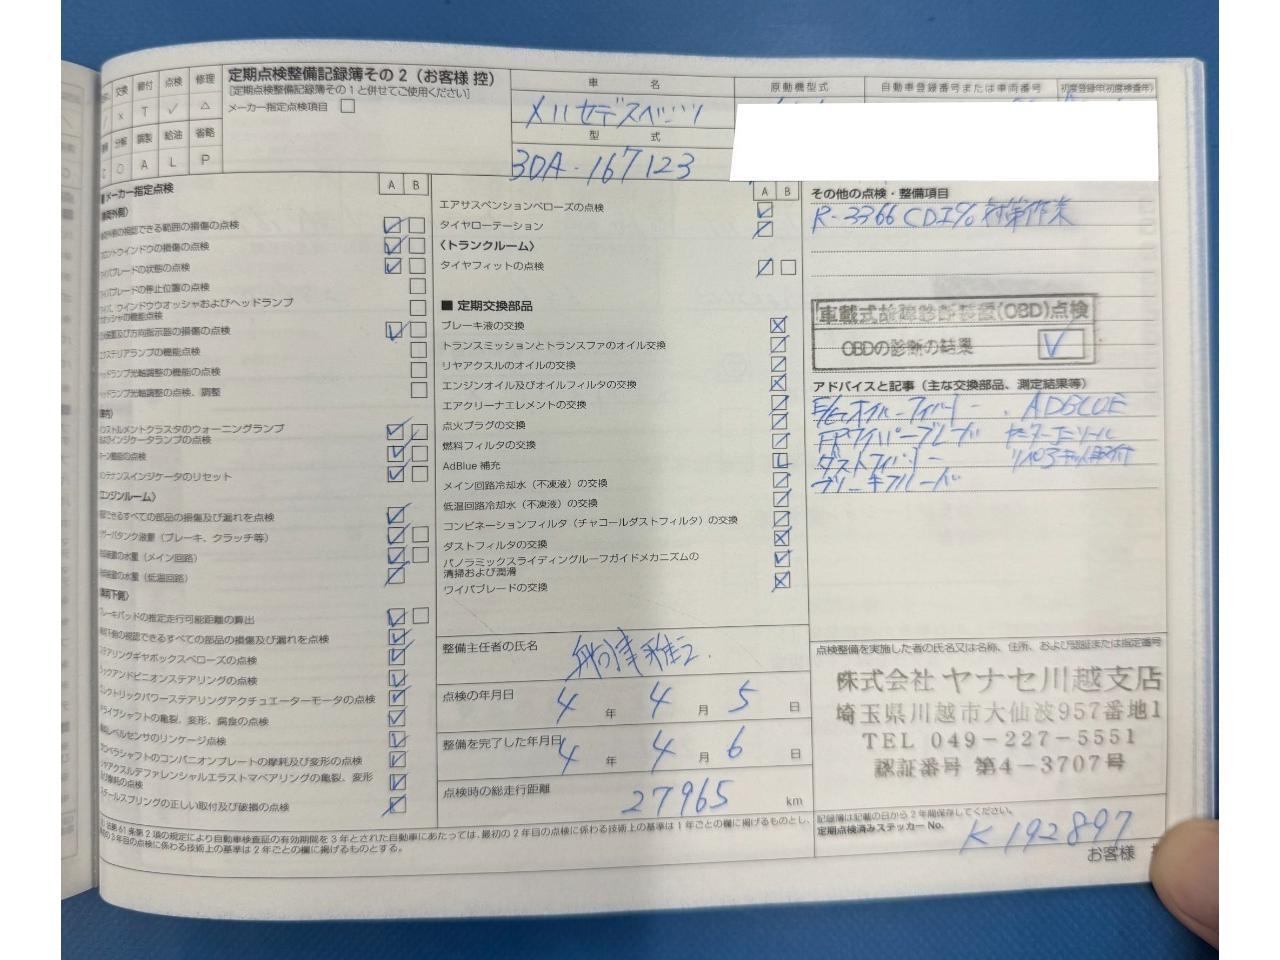 交換
締付
点検
修理
×
T
✓
△
分解
調整
給油
省略
○
A
L
P
定期点検整備記録簿その2(お客様 控)
[定期点検整備記録簿その1と併せてご使用ください]
メーカー指定点検項目
車 名
原動機型式
自動車登録番号または車両番号
初度登録年(初度検査年)
メルセデスベンツ
型 式
3DA-167123
■メーカー指定点検
A B
の視認できる範囲の損傷の点検
フロントウインドウの損傷の点検
ワイパブレードの状態の点検
ワイパブレードの停止位置の点検
ウインドウウオッシャおよびヘッドランプ
ウオッシャの機能点検
及び方向指示器の損傷の点検
エクステリアランプの機能点検
ヘッドランプ光軸調整の機能の点検
ヘッドランプ光軸調整の点検、調整
インストルメントクラスタのウォーニングランプ
及びインジケータランプの点検
ホーン機能の点検
メンテナンスインジケータのリセット
〈エンジンルーム〉
視認できるすべての部品の損傷及び漏れを点検
リザーバタンク液量(ブレーキ、クラッチ等)
冷却装置の水量(メイン回路)
冷却装置の水量(低温回路)
〈車両下側〉
ブレーキパッドの推定走行可能距離の算出
車両下側の視認できるすべての部品の損傷及び漏れを点検
ステアリングギヤボックスベローズの点検
ラックアンドピニオンステアリングの点検
エレクトリックパワーステアリングアクチュエーターモータの点検
ドライブシャフトの亀裂、変形、腐食の点検
車高レベルセンサのリンケージ点検
プロペラシャフトのコンパニオンプレートの摩耗及び変形の点検
リヤアクスルデファレンシャルエラストマベアリングの亀裂、変形
及び摩耗の点検
スチールスプリングの正しい取付及び破損の点検
A B
エアサスペンションベローズの点検
タイヤローテーション
〈トランクルーム〉
タイヤフィットの点検
■ 定期交換部品
ブレーキ液の交換
トランスミッションとトランスファのオイル交換
リヤアクスルのオイルの交換
エンジンオイル及びオイルフィルタの交換
エアクリーナエレメントの交換
点火プラグの交換
燃料フィルタの交換
AdBlue 補充
メイン回路冷却水(不凍液)の交換
低温回路冷却水(不凍液)の交換
コンビネーションフィルタ(チャコールダストフィルタ)の交換
ダストフィルタの交換
パノラミックスライディングルーフガイドメカニズムの
清掃および潤滑
ワイパブレードの交換
整備主任者の氏名
点検の年月日 4 年 4 月 5 日
整備を完了した年月日 4 年 4 月 6 日
点検時の総走行距離 27965 km
その他の点検・整備項目
R-3366 CDI% 対策作業
車載式故障診断装置(OBD)点検
OBDの診断の結果 ✓
アドバイスと記事(主な交換部品、測定結果等)
E/Gオイル-フィルター . ADBLUE
FRワイパーブレード
ダストフィルター
ブレーキフルード
点検整備を実施した者の氏名又は名称、住所、および認証または指定番号
株式会社 ヤナセ川越支店
埼玉県川越市大仙波957番地1
TEL 049-227-5551
認証番号 第4-3707号
記録簿は記載の日から2年間保存してください。
定期点検済みステッカー No. K192897
法第61条第2項の規定により自動車検査証の有効期間を3年とされた自動車にあたっては、最初の2年目の点検に係わる技術上の基準は1年ごとの欄に掲げるものとし、
3年目の点検に係わる技術上の基準は2年ごとの欄に掲げるものとする。
お客様